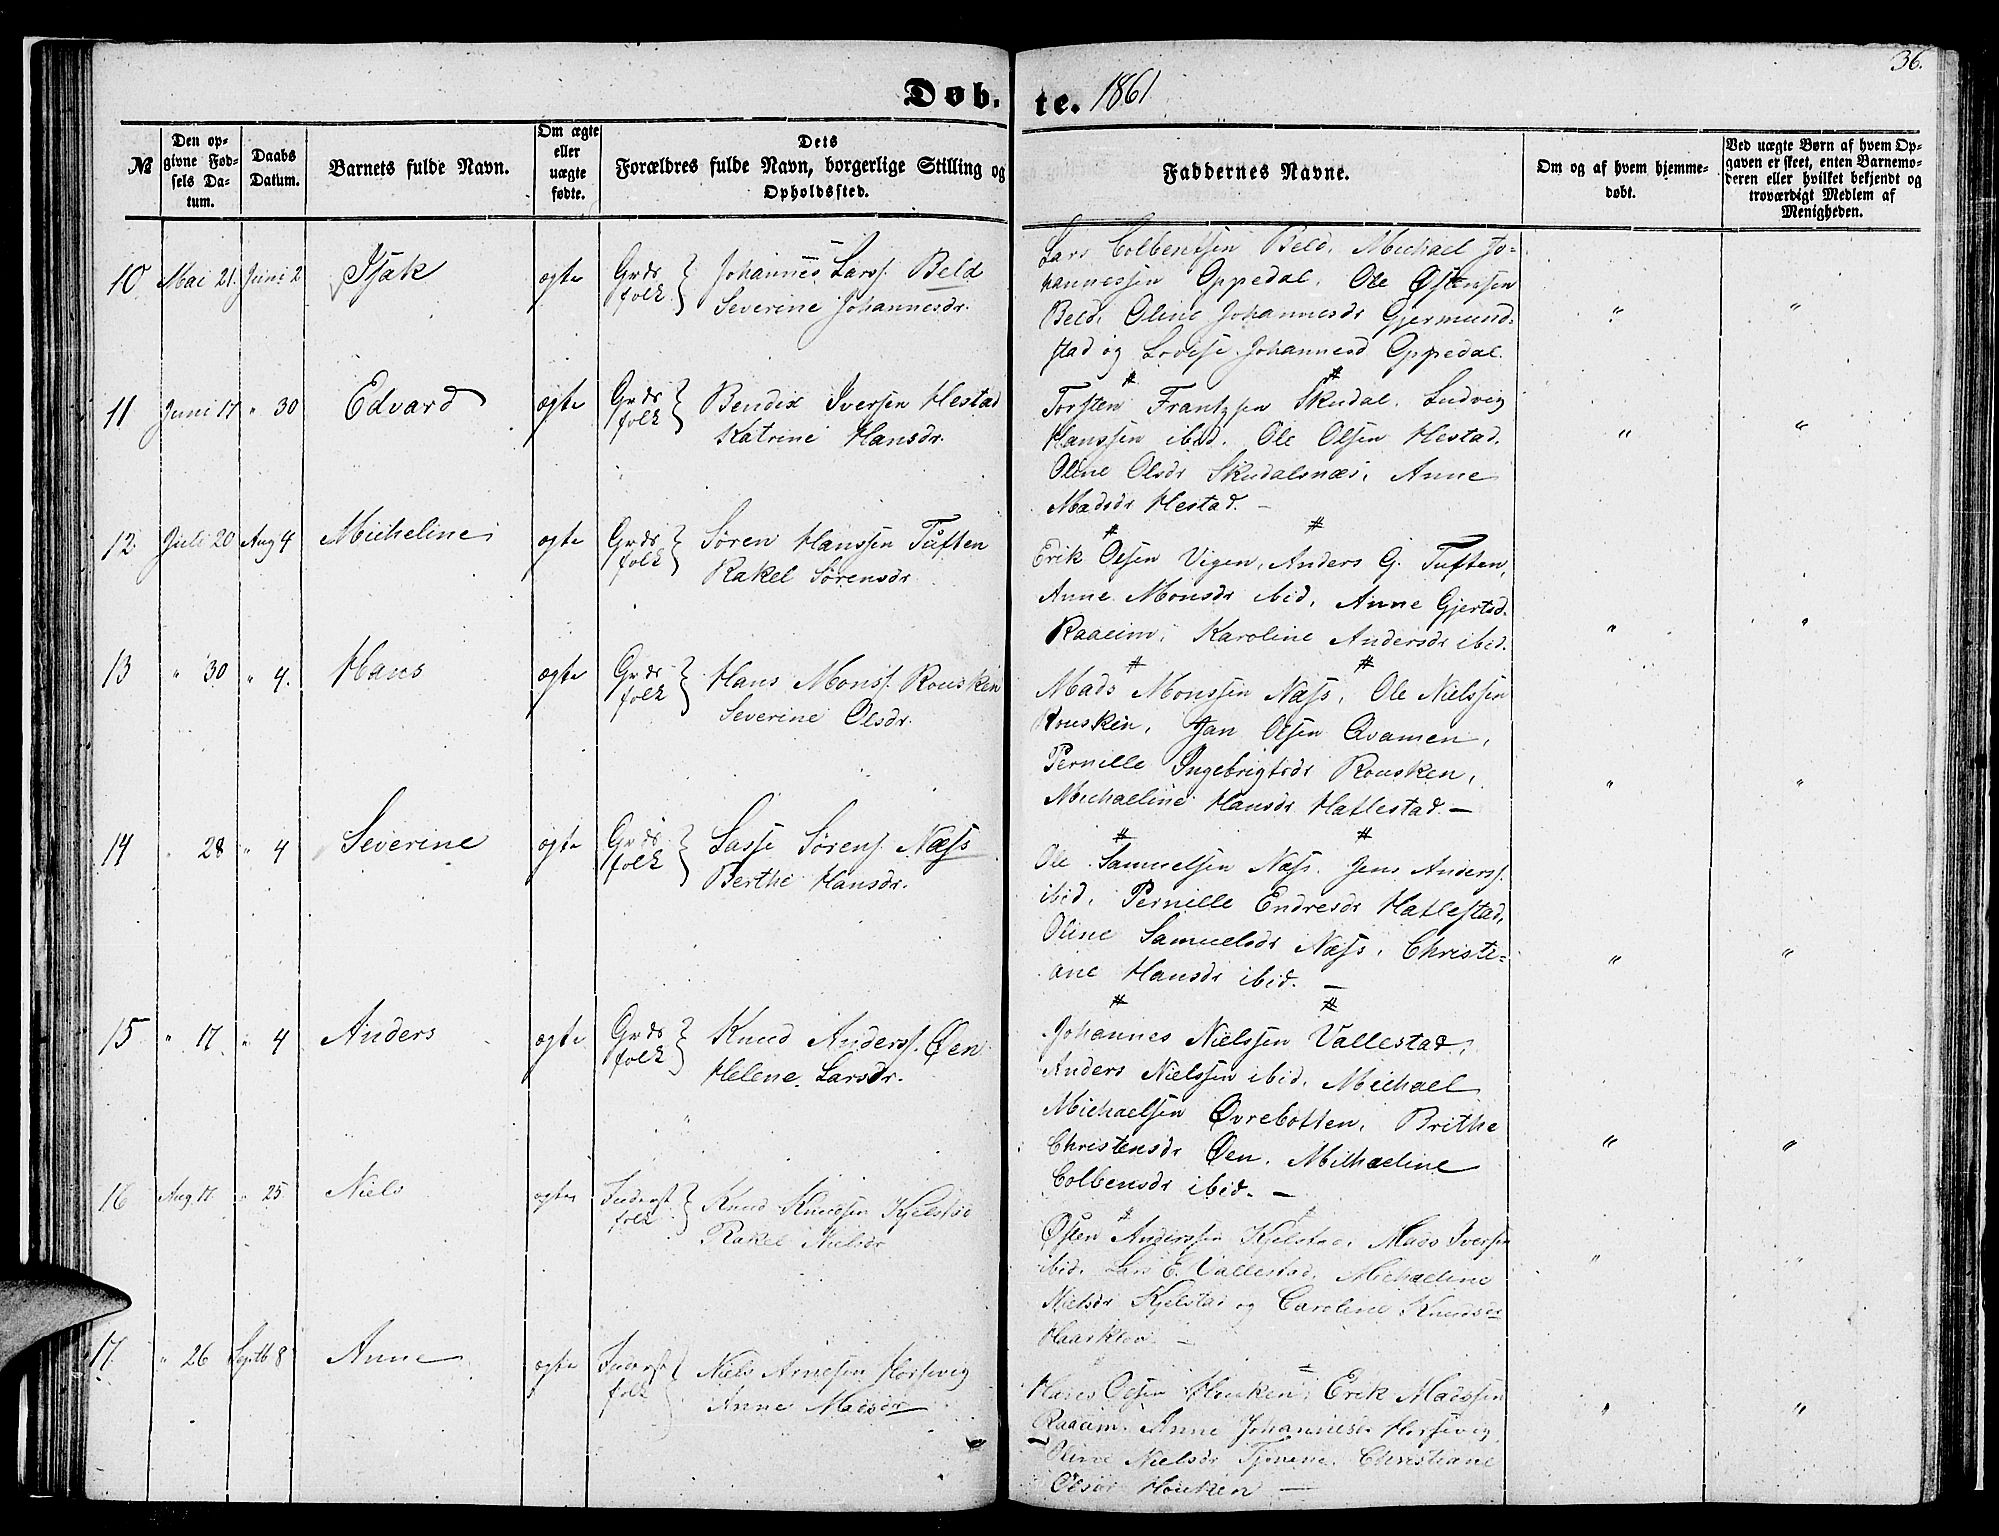 36.
Døb. te. 1861
№
Den opgivne Fødsels Datum.
Daabs Datum.
Barnets fulde Navn.
Om ægte eller uægte fødte.
Dets Forældres fulde Navn, borgerlige Stilling og Opholdssted.
Faddernes Navne.
Om og af hvem hjemmedøbt.
Ved uægte Børn af hvem Opgaven er skeet, enten Barnemoderen eller hvilket bekjendt og troværdigt Medlem af Menigheden.
10 Mai 21. Juni 2 Isak ægte Grdsfolk Johannes Larss. Beld
Severine Johannesdr.
Lars Colbentsen Beld, Michael Jo-
hannessen Oppedal, Ole Østensen
Beld, Oline Johannesdr Gjermund-
stad og Lovise Johannesd Oppedal.
" "
11 Juni 17 " 30 Edvard ægte Grdsfolk Bendix Iversen Hestad
Katrine Hansdr.
Torsten Frantzsen Skudal, Ludvig
Hanssen ibid. Ole Olsen Hestad,
Oline Olsdr Skudalsnæs, Anne
Madsdr Hestad. —
" "
12 Juli 20 Aug 4 Micheline ægte Grdsfolk Søren Hanssen Tuften
Rakel Sørensdr
Erik Olsen Vigen, Anders G. Tuften,
Anne Monsdr ibid, Anne Gjertsd.
Raaeim, Karoline Andersdr ibid.
" "
13 " 30 " 4. Hans ægte Grdsfolk Hans Monss. Rousken
Severine Olsdr.
Mads Monssen Næss, Ole Nielssen
Rousken, Jan Olsen Qvamen,
Pernille Ingebrigtsdr Rousken,
Michaeline Hansdr Hatlestad —
" "
14 " 28 " 4 Severine ægte Grdsfolk Lasse Sørens. Næss
Berthe Hansdr.
Ole Samuelsen Næss, Jens Anderss.
ibid, Pernille Endresdr Hatlestad,
Oline Samuelsdr Næss, Christi-
ane Hansdr ibid. —
" "
15 " 17 " 4 Anders ægte Grdsfolk Knud Anderss. Øen
Helene Larsdr.
Johannes Nielssen Vallestad,
Anders Nielssen ibid, Michael
Michaelsen Øvrebotten, Brithe
Christensdr Øen, Michaeline
Colbensdr ibid. —
" "
16 Aug 17 " 25 Niels ægte Inderstfolk Knud Knudsen Kjelstad
Rakel Nielsdr
Østen Anderssen Kjelstad, Mads Iversen
ibid, Lars E. Vallestad, Michaeline
Nielsdr Kjelstad og Caroline Knudsdr
Haarklov —
" "
17. " 26 Septb 8 Anne ægte Inderstfolk Niels Arnesen Horsevig
Anne Madsdr
Hans Olsen Houken, Erik Madssen
Raaeim, Anne Johannesd. Horsevig,
Oline Nielsdr Tjønene, Christiane
Olsdr Houken —
" "